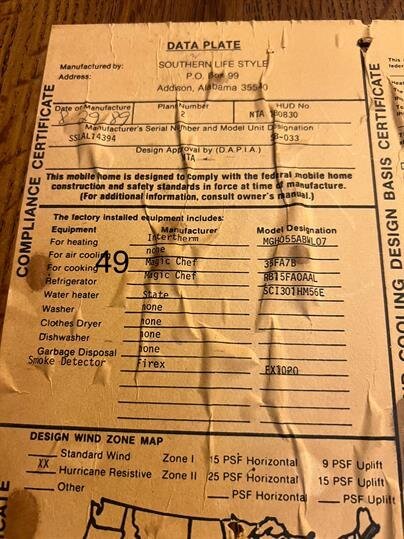 DATA PLATE
Manufactured by: SOUTHERN LIFE STYLE
Address: P.O. Box 99
Addison, Alabama 35540
Date of Manufacture Plant Number HUD No.
8/29/89 2 NTA 180830
Manufacturer's Serial Number and Model Unit Designation
SSLAL14394 SB-033
Design Approval by (D.A.P.I.A.)
NTA
This mobile home is designed to comply with the federal mobile home
construction and safety standards in force at time of manufacture.
(For additional information, consult owner's manual.)
COMPLIANCE CERTIFICATE
The factory installed equipment includes:
Equipment Manufacturer Model Designation
For heating Intertherm MGH055ABWL07
For air cooling none
49
For cooking Magic Chef 38FA7B
Refrigerator Magic Chef RB15FA0AAL
Water heater State SCI301HM56E
Washer none
Clothes Dryer none
Dishwasher none
Garbage Disposal none
Smoke Detector Firex FX1020
DESIGN WIND ZONE MAP
Standard Wind Zone I 15 PSF Horizontal 9 PSF Uplift
XX Hurricane Resistive Zone II 25 PSF Horizontal 15 PSF Uplift
Other PSF Horizontal PSF Uplift
DESIGN BASIS CERTIFICATE
COOLING